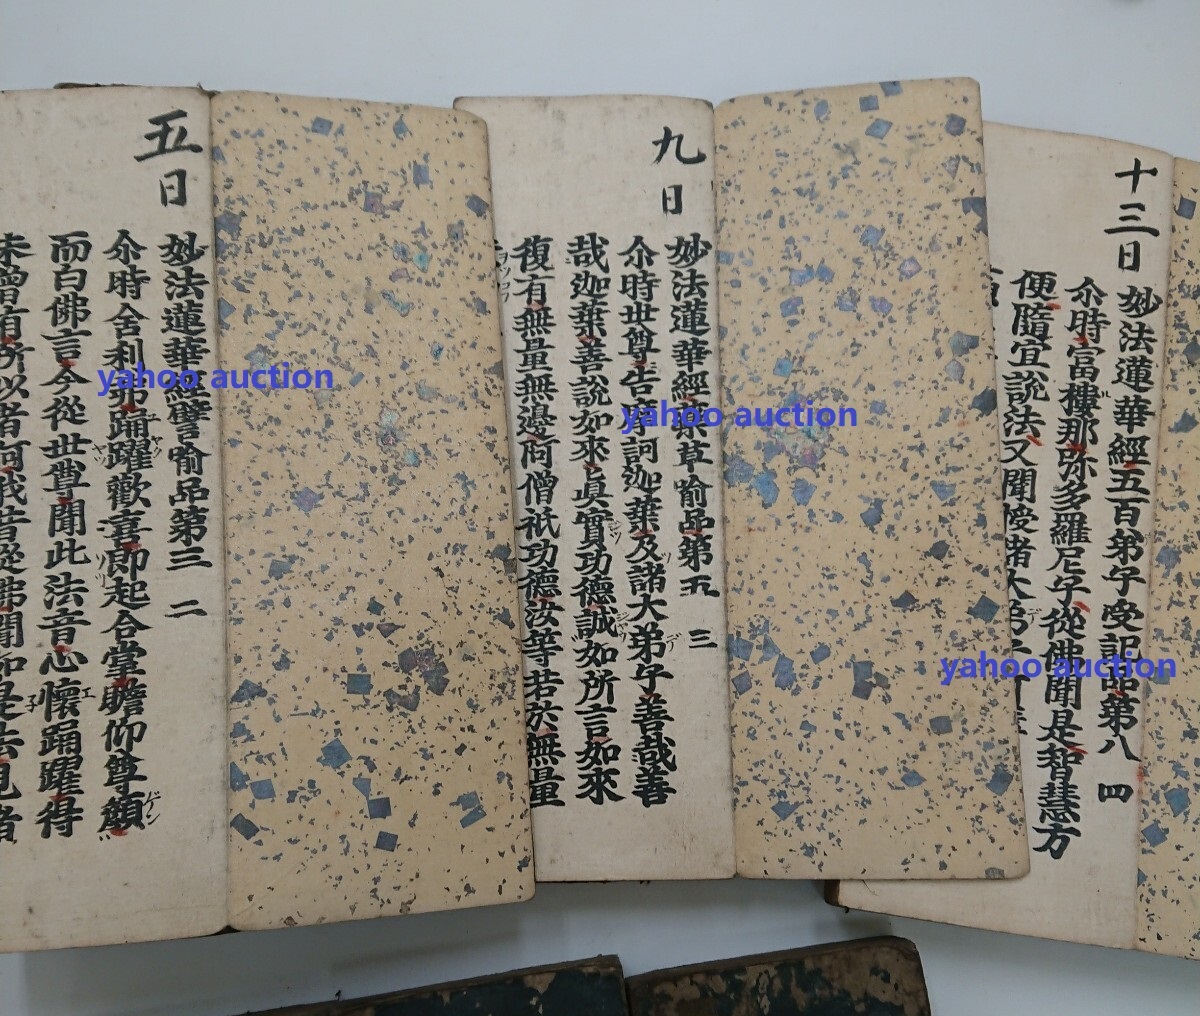 十三日
妙法蓮華經五百弟子受記品第八 四
尒時富樓那弥多羅尼子從佛聞是智慧方
便隨宜說法又聞授諸大弟子
九日
妙法蓮華經藥草喻品第五 三
尒時世尊告摩訶迦葉及諸大弟子善哉善
哉迦葉善說如來真實功德誠如所言如來
復有無量無邊阿僧祇功德汝等若於無量
五日
妙法蓮華經譬喻品第三 二
尒時舍利弗踊躍歡喜即起合掌瞻仰尊顏
而白佛言今從世尊聞此法音心懷踊躍得
未曾有所以者何我昔從佛聞如是法見諸
yahoo auction
yahoo auction
yahoo auction